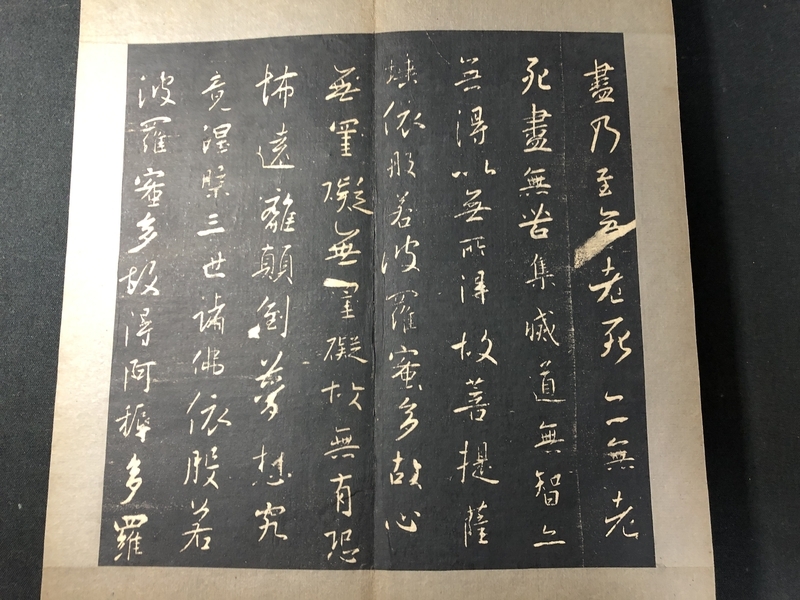 盡乃至無老死亦無老
死盡無苦集滅道無智亦
無得以無所得故菩提薩
埵依般若波羅蜜多故心
無罣礙無罣礙故無有恐
怖遠離顛倒夢想究
竟涅槃三世諸佛依般若
波羅蜜多故得阿耨多羅